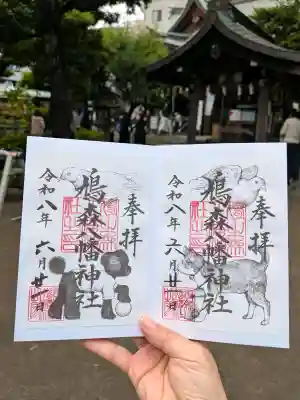 奉拝
鳩森八幡神社
令和八年六月廿一日
奉拝
鳩森八幡神社
令和八年六月廿一日